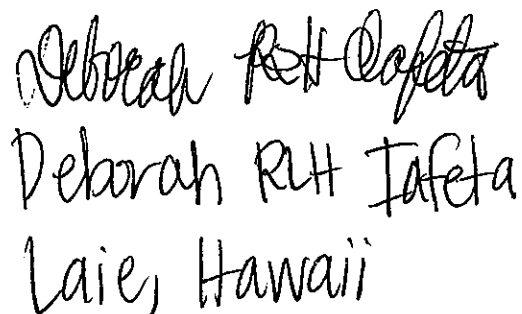 Deborah RLH Iafeta
Deborah RLH Iafeta
Laie, Hawaii